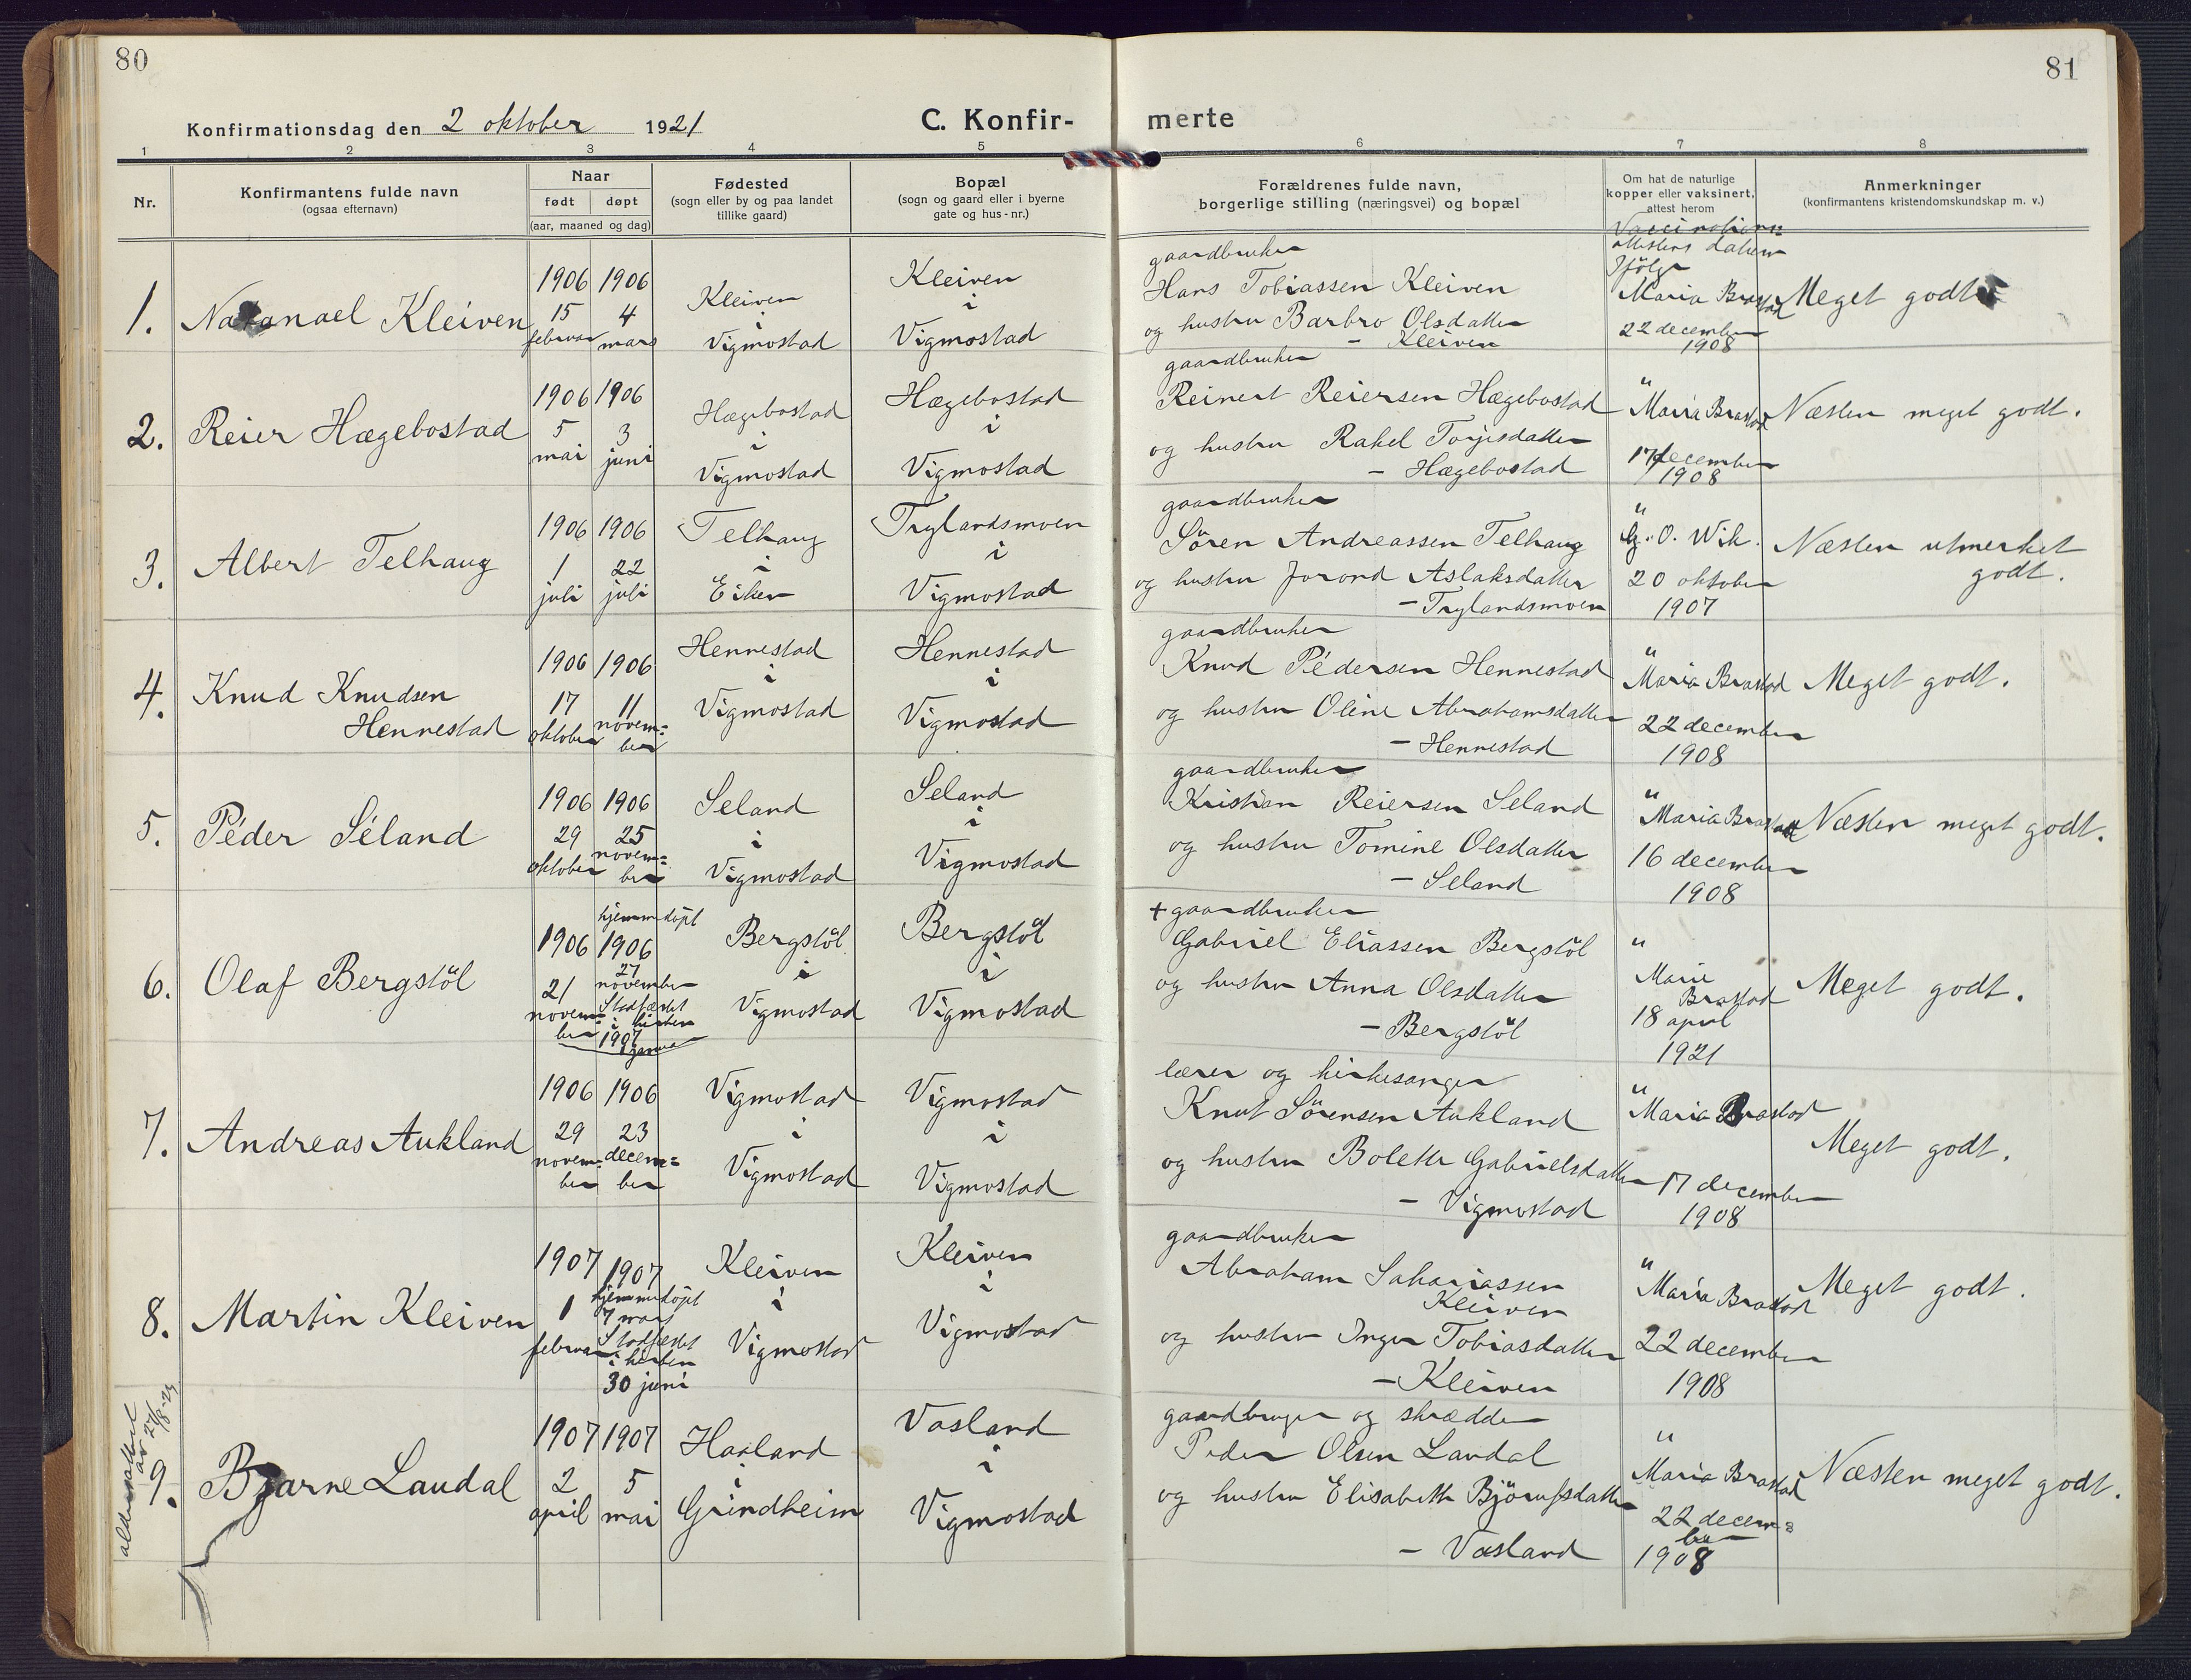 80
81
Konfirmationsdag den 2 oktober 1921
C. Konfir-
merte
1 2 3 4 5 6 7 8
Nr.
Konfirmantens fulde navn
(ogsaa efternavn)
Naar
født døpt
(aar, maaned og dag)
Fødested
(sogn eller by og paa landet
tillike gaard)
Bopæl
(sogn og gaard eller i byerne
gate og hus-nr.)
Forældrenes fulde navn,
borgerlige stilling (næringsvei) og bopæl
Om hat de naturlige
kopper eller vaksinert,
attest herom
Anmerkninger
(konfirmantens kristendomskundskap m. v.)
1.
Natanael Kleiven
1906
15
februar
1906
4
mars
Kleiven
i
Vigmostad
Kleiven
i
Vigmostad
gaardbruker
Hans Tobiassen Kleiven
og hustru Barbro Olsdatter
- Kleiven
Vaccinations=
attestens datum
Ifölge
Maria Brastad
22 december
1908
Meget godt
2.
Reier Hægebostad
1906
5
mai
1906
3
juni
Hægebostad
i
Vigmostad
Hægebostad
i
Vigmostad
gaardbruker
Reinert Reiersen Hægebostad
og hustru Rakel Torjesdatter
- Hægebostad
"
Maria Brastad
17 december
1908
Næsten meget godt.
3.
Albert Telhaug
1906
1
juli
1906
22
juli
Telhaug
i
Eiken
Trylandsmoen
i
Vigmostad
gaardbruker
Sören Andreassen Telhaug
og hustru Jorond Aslaksdatter
- Trylandsmoen
"
G. O. Wik.
20 oktober
1907
Næsten utmerket
godt.
4.
Knud Knudsen
Hennestad
1906
17
oktober
1906
11
novem=
ber
Hennestad
i
Vigmostad
Hennestad
i
Vigmostad
gaardbruker
Knud Pedersen Hennestad
og hustru Oline Abrahamsdatter
- Hennestad
"
Maria Brastad
22 december
1908
Meget godt.
5.
Péder Séland
1906
29
oktober
1906
25
novem=
ber
Seland
i
Vigmostad
Seland
i
Vigmostad
gaardbruker
Kristian Reiersen Seland
og hustru Tomine Olsdatter
- Seland
"
Maria Brastad
16 december
1908
Næsten meget godt.
6.
Olaf Bergstöl
1906
21
novem=
ber
hjemmedöpt
1906
27
november
Stadfæstet
i kirken
1907
januar
Bergstöl
i
Vigmostad
Bergstöl
i
Vigmostad
+ gaardbruker
Gabriel Eliassen Bergstöl
og hustru Anna Olsdatter
- Bergstöl
"
Marie
Brastad
18 april
1921
Meget godt.
7.
Andreas Aukland
1906
29
novem=
ber
1906
23
decem=
ber
Vigmostad
i
Vigmostad
Vigmostad
i
Vigmostad
lærer og kirkesanger
Knut Sörensen Aukland
og hustru Bolette Gabrielsdatter
- Vigmostad
"
Maria Brastad
17 december
1908
Meget godt.
8.
Martin Kleiven
1907
1
februar
1907
hjemmedöpt
7 mars
Stadfæstet
i kirken
30 juni
Kleiven
i
Vigmostad
Kleiven
i
Vigmostad
gaardbruker
Abraham Sakariassen
Kleiven
og hustru Inger Tobiasdatter
- Kleiven
"
Maria Brastad
22 december
1908
Meget godt.
aldersattest
av 27/8-24
9.
Bjarne Laudal
1907
2
april
1907
5
mai
Haaland
i
Grindheim
Vasland
i
Vigmostad
gaardbruger og skrædder
Peder Olsen Laudal
og hustru Elisabeth Björufsdatter
- Vasland
"
Maria Brastad
22 decem=
ber
1908
Næsten meget godt.